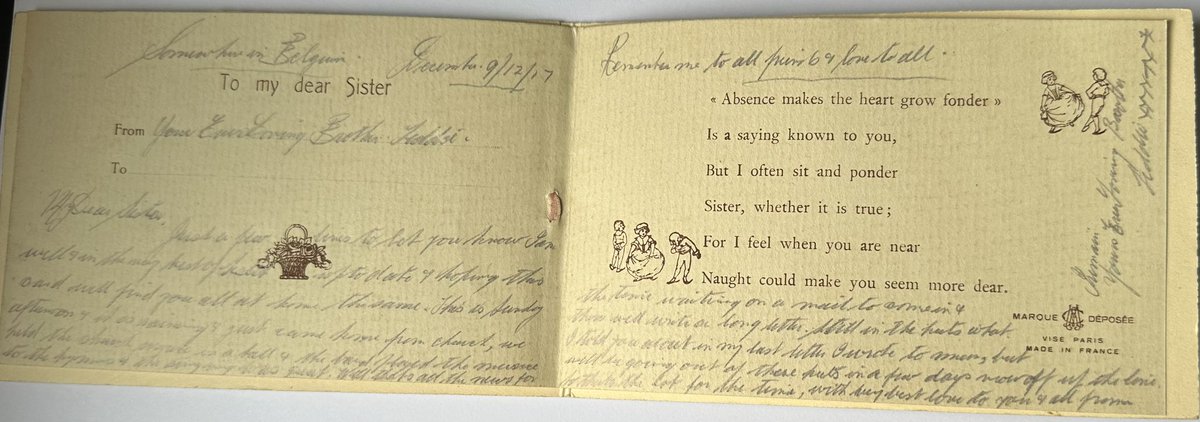 Somewhere in Belgium. December. 9/12/17
To my dear Sister
From Your Ever Loving Brother. Teddie.
To
My Dear Sister
Just a few lines to let you know I am
well & in the very best of health up to date & hoping this
card will find you all at home the same. This is Sunday
afternoon & just came home from church, we
held the church in a hall & the band played the music
to the hymns & the singing was great. Well that's all the news for
Remember me to all friends & love to all.
« Absence makes the heart grow fonder »
Is a saying known to you,
But I often sit and ponder
Sister, whether it is true ;
For I feel when you are near
Naught could make you seem more dear.
the time waiting on a mail to come in &
then will write a long letter. Still in the huts what
I told you about in my last letter I wrote to mum, but
will be going out of these huts in a few days now off up the line.
that's the lot for the time, with very best love to you & all from
MARQUE DÉPOSÉE
VISE PARIS
MADE IN FRANCE
I remain
Yours Ever Loving Brother
Teddie xxxxxxx